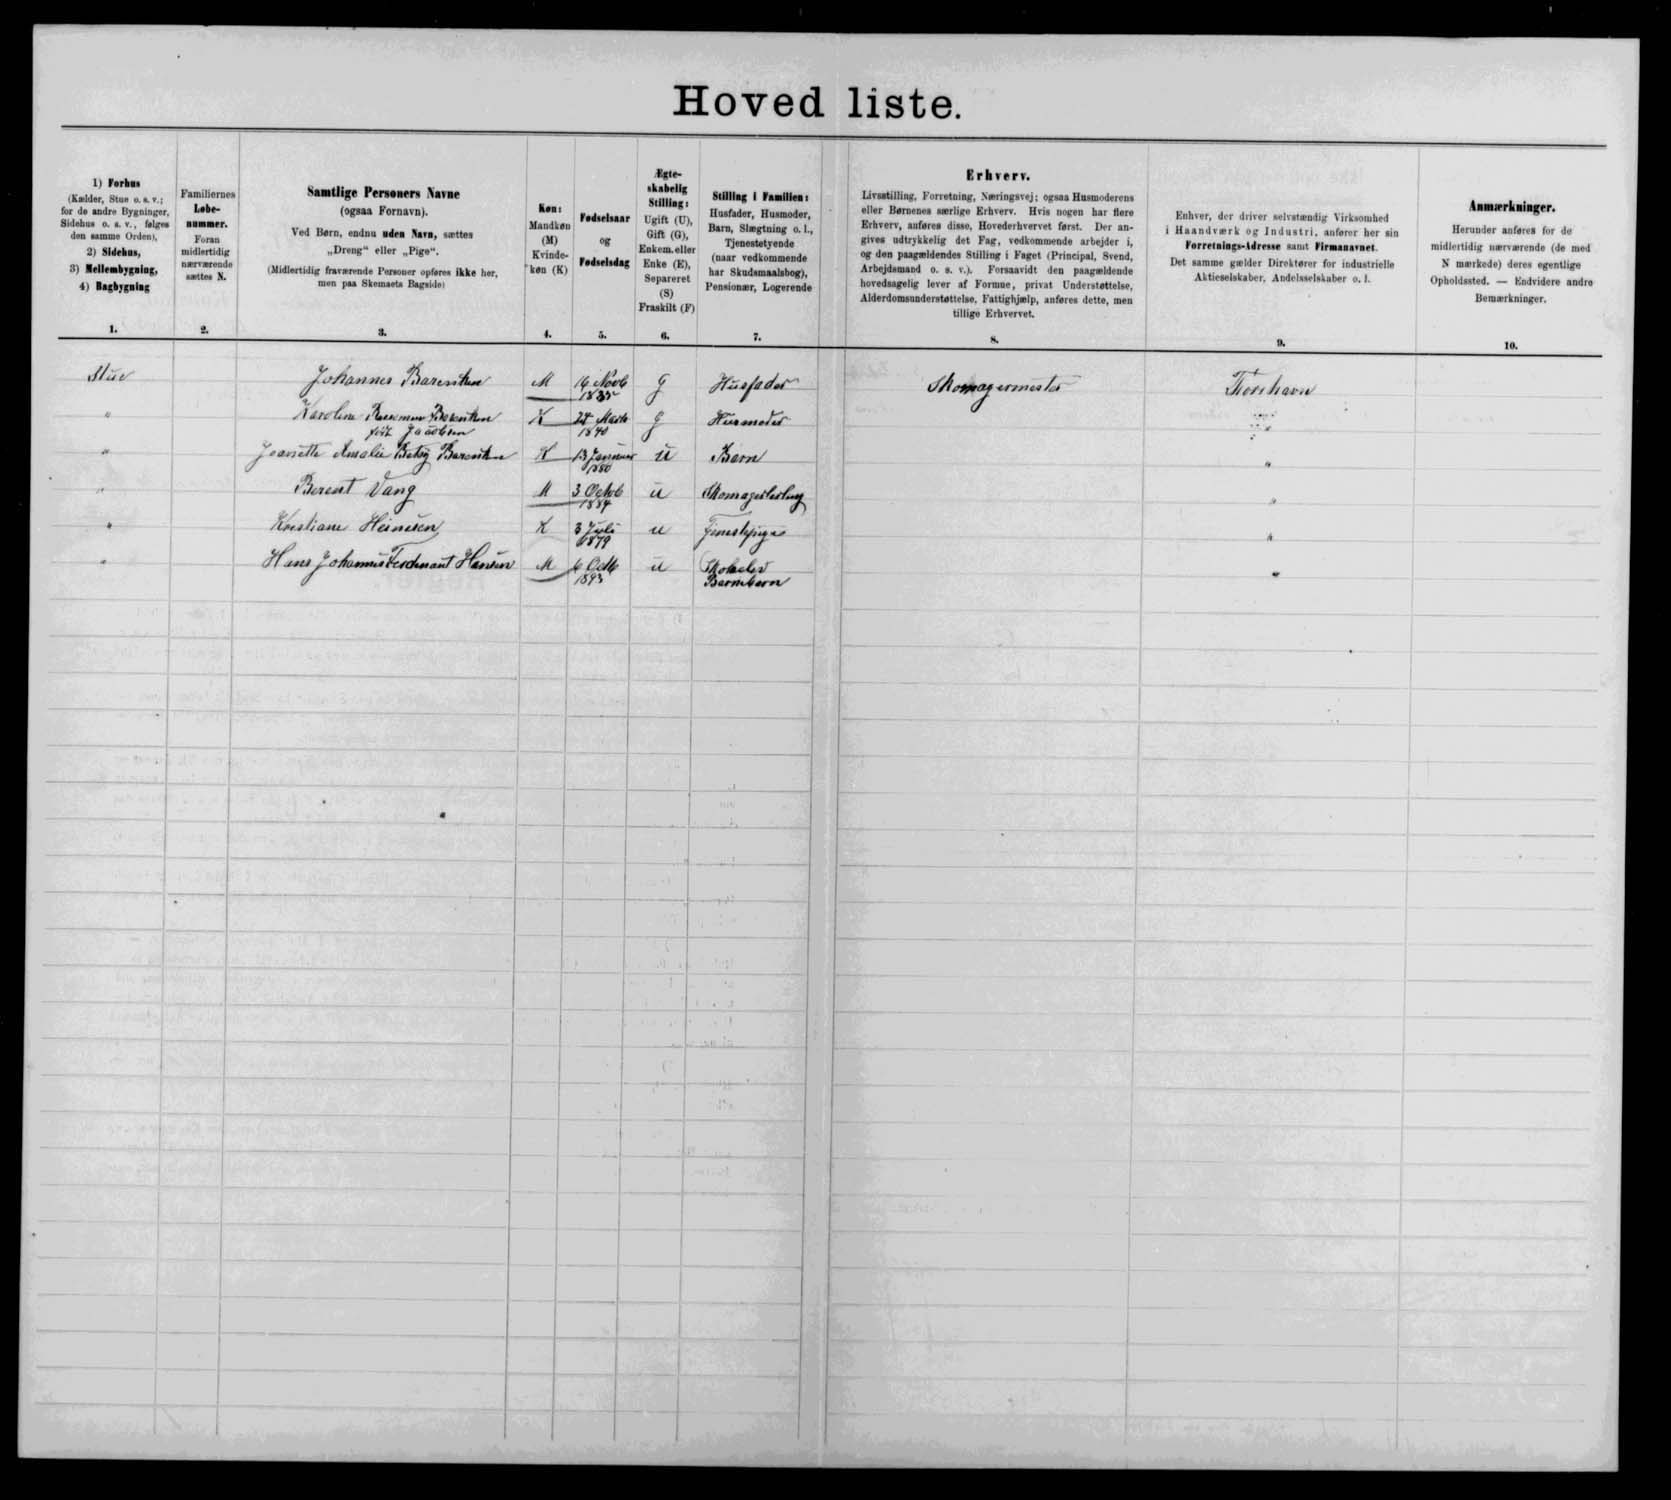 Hoved liste.
1) Forhus
(Kælder, Stue o. s. v.;
for de andre Bygninger,
Sidehus o. s. v., følges
den samme Orden),
2) Sidehus,
3) Mellembygning,
4) Bagbygning
1.
Familiernes
Løbe-
nummer.
Foran
midlertidig
nærværende
sættes N.
2.
Samtlige Personers Navne
(ogsaa Fornavn).
Ved Børn, endnu uden Navn, sættes
„Dreng“ eller „Pige“.
(Midlertidig fraværende Personer opføres ikke her,
men paa Skemaets Bagside)
3.
Køn:
Mandkøn
(M)
Kvinde-
køn (K)
4.
Fødselsaar
og
Fødselsdag
5.
Ægte-
skabelig
Stilling:
Ugift (U),
Gift (G),
Enkem. eller
Enke (E),
Separeret
(S)
Fraskilt (F)
6.
Stilling i Familien:
Husfader, Husmoder,
Barn, Slægtning o. l.,
Tjenestetyende
(naar vedkommende
har Skudsmaalsbog),
Pensionær, Logerende
7.
Erhverv.
Livsstilling, Forretning, Næringsvej; ogsaa Husmoderens
eller Børnenes særlige Erhverv. Hvis nogen har flere
Erhverv, anføres disse, Hovederhvervet først. Der an-
gives udtrykkelig det Fag, vedkommende arbejder i,
og den paagældendes Stilling i Faget (Principal, Svend,
Arbejdsmand o. s. v.). Forsaavidt den paagældende
hovedsagelig lever af Formue, privat Understøttelse,
Alderdomsunderstøttelse, Fattighjælp, anføres dette, men
tillige Erhvervet.
8.
Enhver, der driver selvstændig Virksomhed
i Haandværk og Industri, anfører her sin
Forretnings-Adresse samt Firmanavnet.
Det samme gælder Direktører for industrielle
Aktieselskaber, Andelsselskaber o. l.
9.
Anmærkninger.
Herunder anføres for de
midlertidig nærværende (de med
N mærkede) deres egentlige
Opholdssted. — Endvidere andre
Bemærkninger.
10.
Stue Johannes Barentsen M 16 Novb 1835 G Husfader Skomagermester Thorshavn
" Karoline Barentsen K Marts G Husmoder "
født Jacobsen 1840
" Jeanette Amalie Betsy Barentsen K 13 Januar 1880 U Barn "
" Berent Vang M 3 Octob 1884 U Skomagerlærling "
" Kristiane Heinesen K 3 Juli 1879 U Tjenestepige "
" Hans Johannes Ferdenant Hansen M 6 Octb 1893 U Skoleelev "
Barnebarn